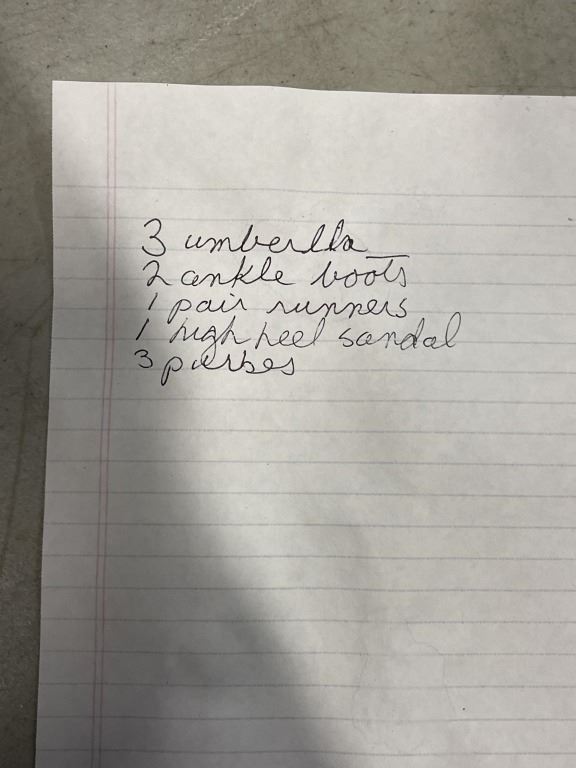 3 umberlla
2 ankle boots
1 pair runners
1 high heel sandal
3 purses